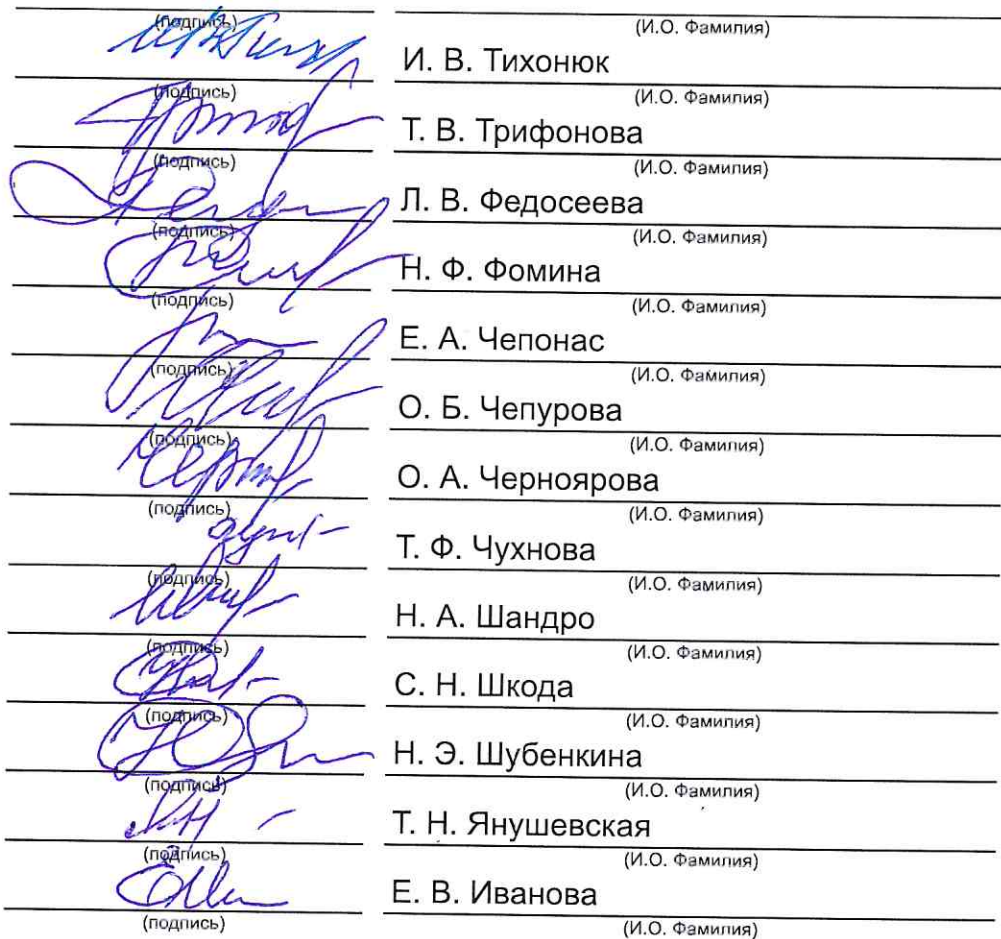 (подпись) (И.О. Фамилия)
И. В. Тихонюк
(подпись) (И.О. Фамилия)
Т. В. Трифонова
(подпись) (И.О. Фамилия)
Л. В. Федосеева
(подпись) (И.О. Фамилия)
Н. Ф. Фомина
(подпись) (И.О. Фамилия)
Е. А. Чепонас
(подпись) (И.О. Фамилия)
О. Б. Чепурова
(подпись) (И.О. Фамилия)
О. А. Черноярова
(подпись) (И.О. Фамилия)
Т. Ф. Чухнова
(подпись) (И.О. Фамилия)
Н. А. Шандро
(подпись) (И.О. Фамилия)
С. Н. Шкода
(подпись) (И.О. Фамилия)
Н. Э. Шубенкина
(подпись) (И.О. Фамилия)
Т. Н. Янушевская
(подпись) (И.О. Фамилия)
Е. В. Иванова
(подпись) (И.О. Фамилия)